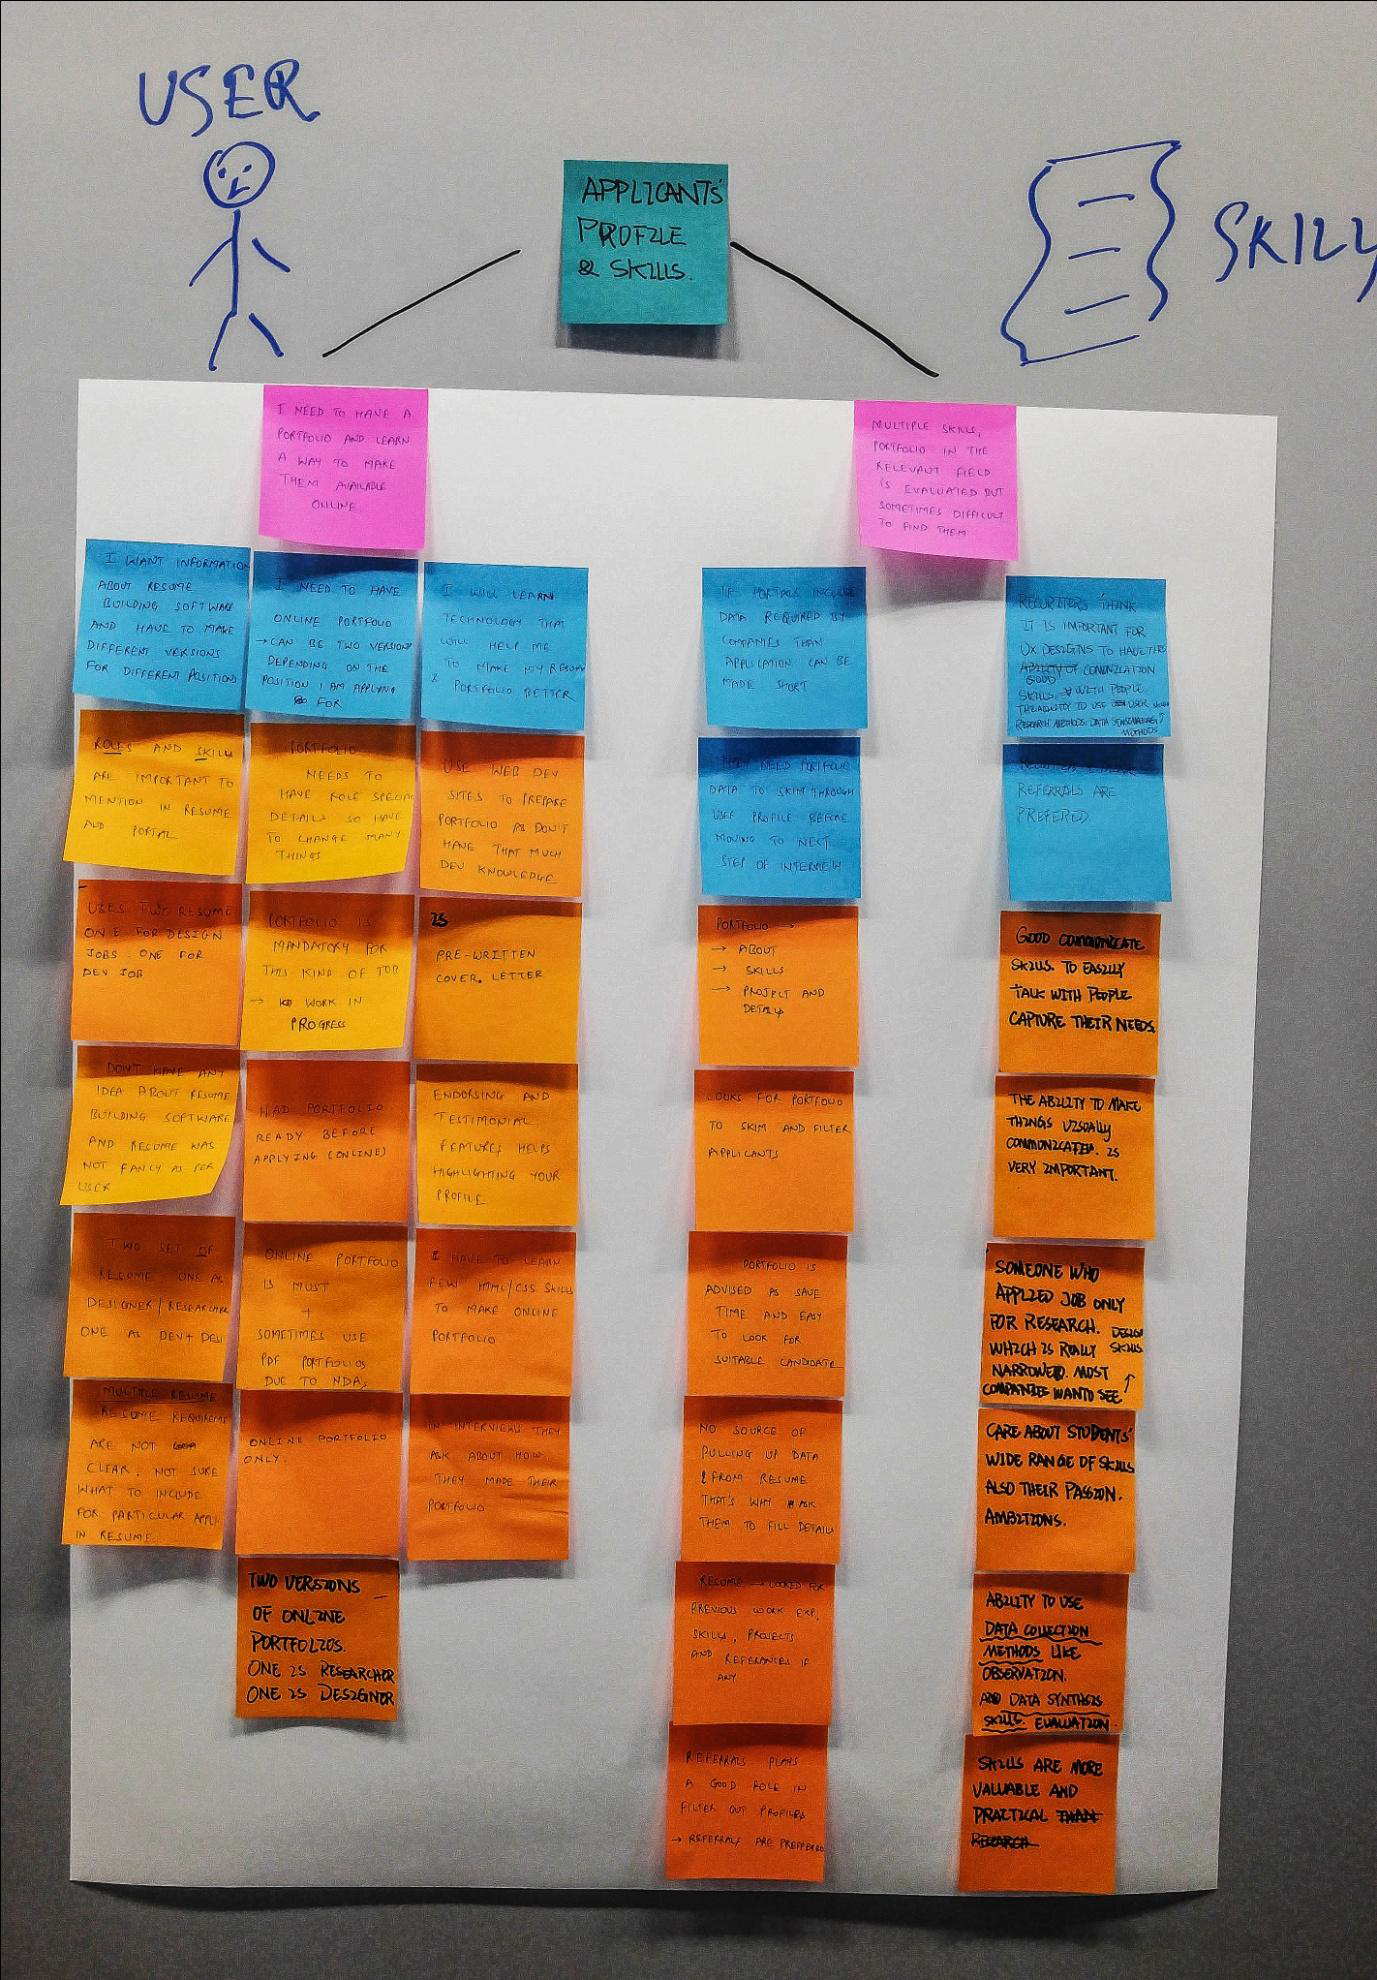 USER
APPLICANTS'
PROFILE
& SKILLS.
SKILL
I NEED TO HAVE A
PORTFOLIO AND LEARN
A WAY TO MAKE
THEM AVAILABLE
ONLINE
MULTIPLE SKILLS,
PORTFOLIO IN THE
RELEVANT FIELD
IS EVALUATED BUT
SOMETIMES DIFFICULT
TO FIND THEM
I WANT INFORMATION
ABOUT RESUME
BUILDING SOFTWARE
AND HAVE TO MAKE
DIFFERENT VERSIONS
FOR DIFFERENT POSITIONS
ROLES AND SKILLS
ARE IMPORTANT TO
MENTION IN RESUME
AND PORTAL
USES TWO RESUME
ONE FOR DESIGN
JOBS. ONE FOR
DEV JOB
DON'T HAVE ANY
IDEA ABOUT RESUME
BUILDING SOFTWARE
AND RESUME WAS
NOT FANCY AS PER
USER
TWO SET OF
RESUME ONE AS
DESIGNER/RESEARCHER
ONE AS DEV+DESI
MULTIPLE RESUME
RESUME REQUIREMENTS
ARE NOT
CLEAR. NOT SURE
WHAT TO INCLUDE
FOR PARTICULAR APPLI.
IN RESUME
I NEED TO HAVE
ONLINE PORTFOLIO
→ CAN BE TWO VERSIONS
DEPENDING ON THE
POSITION I AM APPLYING
FOR
PORTFOLIO
NEEDS TO
HAVE ROLE SPECIAL
DETAILS SO HAVE
TO CHANGE MANY
THINGS
PORTFOLIO IS
MANDATORY FOR
THIS KIND OF JOB
→ WORK IN
PROGRESS
HAD PORTFOLIO
READY BEFORE
APPLYING (ONLINE)
ONLINE PORTFOLIO
IS MUST
+
SOMETIMES USE
PDF PORTFOLIOS
DUE TO NDA,
ONLINE PORTFOLIO
ONLY.
TWO VERSIONS
OF ONLINE
PORTFOLIOS.
ONE IS RESEARCHER
ONE IS DESIGNER
I WILL LEARN
TECHNOLOGY THAT
WILL HELP ME
TO MAKE MY RESUME
& PORTFOLIO BETTER
USE WEB DEV
SITES TO PREPARE
PORTFOLIO AS DON'T
HAVE THAT MUCH
DEV KNOWLEDGE
PRE-WRITTEN
COVER. LETTER
ENDORSING AND
TESTIMONIAL
FEATURES HELPS
HIGHLIGHTING YOUR
PROFILE
I HAVE TO LEARN
FEW HTML/CSS SKILLS
TO MAKE ONLINE
PORTFOLIO
IN INTERVIEWS THEY
ASK ABOUT HOW
THEY MADE THEIR
PORTFOLIO
IF PORTALS INCLUDE
DATA REQUIRED BY
COMPANIES THAN
APPLICATION CAN BE
MADE SHORT
THEY NEED PORTFOLIO
DATA TO SKIM THROUGH
USER PROFILE BEFORE
MOVING TO NEXT
STEP OF INTERVIEW
PORTFOLIO →
→ ABOUT
→ SKILLS
→ PROJECT AND
DETAILS
LOOKS FOR PORTFOLIO
TO SKIM AND FILTER
APPLICANTS
PORTFOLIO IS
ADVISED AS SAVE
TIME AND EASY
TO LOOK FOR
SUITABLE CANDIDATE
NO SOURCE OF
PULLING UP DATA
FROM RESUME
THAT'S WHY ASK
THEM TO FILL DETAILS
RESUME → LOOKED FOR
PREVIOUS WORK EXP,
SKILLS, PROJECTS
AND REFERANCES IF
ANY
REFERRALS PLAYS
A GOOD ROLE IN
FILTER OUT PROFILES
→ REFERRALS ARE PREFFERED
RECURITERS THINK
IT IS IMPORTANT FOR
UX DESIGNS TO HAVE
ABILITY OF COMUNICATION
GOOD
SKILLS. WITH PEOPLE
THE ABILITY TO USE USER
RESEARCH METHODS DATA
METHODS
REFERRALS ARE
PREFERED
GOOD COMMUNICATE
SKILLS. TO EASILY
TALK WITH PEOPLE
CAPTURE THEIR NEEDS
THE ABILITY TO MAKE
THINGS VISUALLY
COMMUNICATED. IS
VERY IMPORTANT.
SOMEONE WHO
APPLIED JOB ONLY
FOR RESEARCH. DESIGN
WHICH IS REALLY SKILLS
NARROWED. MOST
COMPANIES WANT TO SEE ↑
CARE ABOUT STUDENTS'
WIDE RANGE OF SKILLS
ALSO THEIR PASSION.
AMBITIONS.
ABILITY TO USE
DATA COLLECTION
METHODS LIKE
OBSERVATION.
AND DATA SYNTHESIS
SKILLS. EVALUATION.
SKILLS ARE MORE
VALUABLE AND
PRACTICAL THAN
RESEARCH